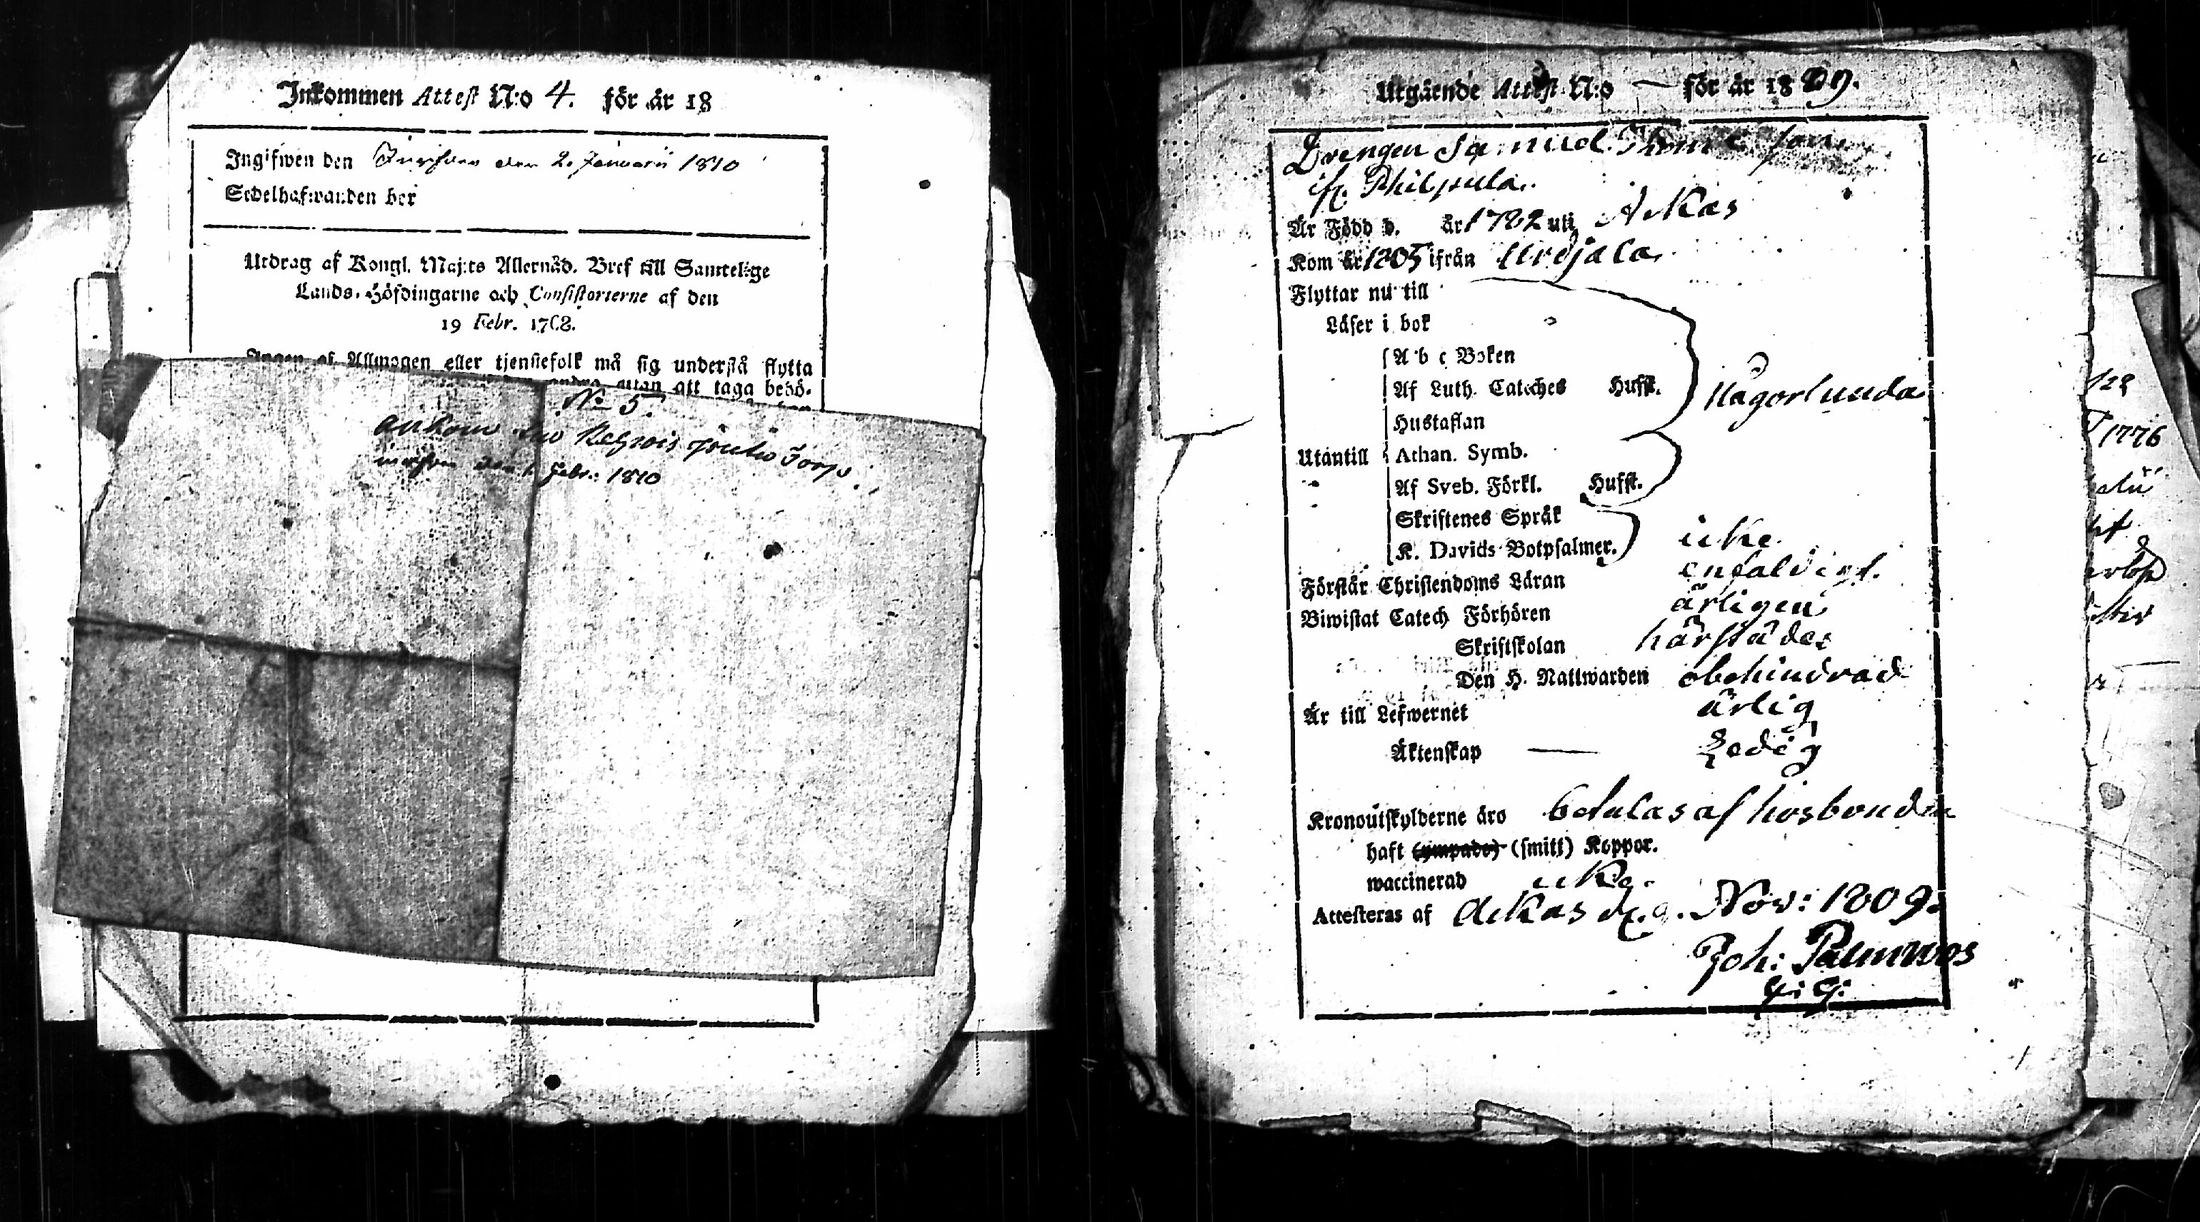 Inkommen Attest N:o 4. för år 18
Ingifwen den Ingifven den 2. Januarii 1810
Sedelhafwanden bor
Utdrag af Kongl. Maj:ts Allernåd. Bref till Samtelige
Lands-Höfdingarne och Consistorierne af den
19 Febr. 1768.
Ingen af Allmogen eller tjenstefolk må sig understå flytta
andra, utan att taga behö-
No 5.
ankom
den 1. Febr: 1810
Utgående Attest N:o — för år 1809.
Drengen Samuel Thomasson
ifr. Philpula.
Är Född d. år 1782 uti Ackas
Kom år 1805 ifrån Urdjala.
Flyttar nu till
Läser i bok
A b c Boken
Af Luth. Cateches Hufst.
någorlunda
Hustaflan
Utantill Athan. Symb.
Af Sveb. Förkl. Hufst.
Skriftenes Språk
K. Davids Botpsalmer. icke
Förstår Christendoms Läran enfaldigt.
Biwistat Catech Förhören årligen
Skriftskolan härstädes
Den H. Nattwarden obehindrad
Är till Lefwernet ärlig
Äktenskap — Ledig
Kronoutskylderne äro betalas af hosbonden
haft (ympade) (smitt) Koppor.
waccinerad icke.
Attesteras af Ackas d. 9. Nov: 1809.
Joh: Palmroos
1776